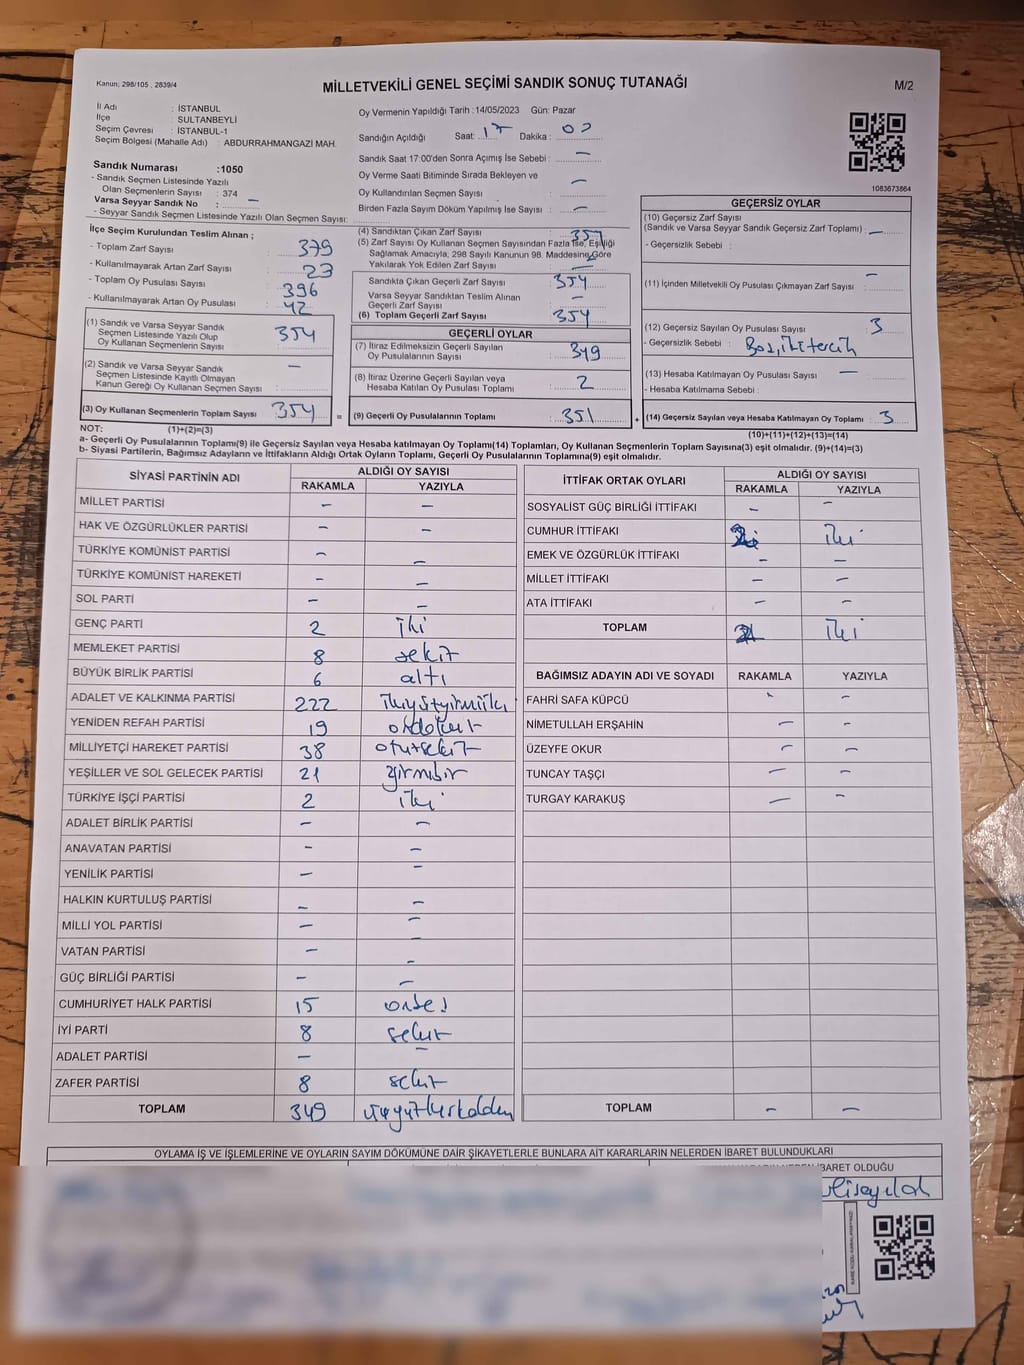 Kanun: 298/105 , 2839/4
MİLLETVEKİLİ GENEL SEÇİMİ SANDIK SONUÇ TUTANAĞI
M/2
İl Adı : İSTANBUL
İlçe : SULTANBEYLİ
Seçim Çevresi : İSTANBUL-1
Seçim Bölgesi (Mahalle Adı) : ABDURRAHMANGAZİ MAH.
Sandık Numarası :1050
- Sandık Seçmen Listesinde Yazılı
Olan Seçmenlerin Sayısı : 374
Varsa Seyyar Sandık No : -
- Seyyar Sandık Seçmen Listesinde Yazılı Olan Seçmen Sayısı:
Oy Vermenin Yapıldığı Tarih :14/05/2023 Gün: Pazar
Sandığın Açıldığı Saat: 17 Dakika :
Sandık Saat 17:00'den Sonra Açımış İse Sebebi : -
Oy Verme Saati Bitiminde Sırada Bekleyen ve
Oy Kullandırılan Seçmen Sayısı : -
Birden Fazla Sayım Döküm Yapılmış İse Sayısı : -
1083673864
İlçe Seçim Kurulundan Teslim Alınan ;
- Toplam Zarf Sayısı : 379
- Kullanılmayarak Artan Zarf Sayısı : 23
- Toplam Oy Pusulası Sayısı : 396
- Kullanılmayarak Artan Oy Pusulası : 42
(1) Sandık ve Varsa Seyyar Sandık
Seçmen Listesinde Yazılı Olup
Oy Kullanan Seçmenlerin Sayısı : 354
(2) Sandık ve Varsa Seyyar Sandık
Seçmen Listesinde Kayıtlı Olmayan
Kanun Gereği Oy Kullanan Seçmen Sayısı : -
(3) Oy Kullanan Seçmenlerin Toplam Sayısı : 354
(1)+(2)=(3)
(4) Sandıktan Çıkan Zarf Sayısı :
(5) Zarf Sayısı Oy Kullanan Seçmen Sayısından Fazla ise, Eşitliği
Sağlamak Amacıyla, 298 Sayılı Kanunun 98. Maddesine Göre
Yakılarak Yok Edilen Zarf Sayısı : -
Sandıkta Çıkan Geçerli Zarf Sayısı : 354
Varsa Seyyar Sandıktan Teslim Alınan
Geçerli Zarf Sayısı : -
(6) Toplam Geçerli Zarf Sayısı : 354
GEÇERLİ OYLAR
(7) İtiraz Edilmeksizin Geçerli Sayılan
Oy Pusulalarının Sayısı : 349
(8) İtiraz Üzerine Geçerli Sayılan veya
Hesaba Katılan Oy Pusulası Toplamı : 2
= (9) Geçerli Oy Pusulalarının Toplamı : 351
GEÇERSİZ OYLAR
(10) Geçersiz Zarf Sayısı
(Sandık ve Varsa Seyyar Sandık Geçersiz Zarf Toplamı) : -
- Geçersizlik Sebebi :
(11) İçinden Milletvekili Oy Pusulası Çıkmayan Zarf Sayısı : -
(12) Geçersiz Sayılan Oy Pusulası Sayısı : 3
- Geçersizlik Sebebi : Boş, iki tercih
(13) Hesaba Katılmayan Oy Pusulası Sayısı : -
- Hesaba Katılmama Sebebi :
+ (14) Geçersiz Sayılan veya Hesaba Katılmayan Oy Toplamı : 3
(10)+(11)+(12)+(13)=(14)
NOT:
a- Geçerli Oy Pusulalarının Toplamı(9) ile Geçersiz Sayılan veya Hesaba katılmayan Oy Toplamı(14) Toplamları, Oy Kullanan Seçmenlerin Toplam Sayısına(3) eşit olmalıdır. (9)+(14)=(3)
b- Siyasi Partilerin, Bağımsız Adayların ve İttifakların Aldığı Ortak Oyların Toplamı, Geçerli Oy Pusulalarının Toplamına(9) eşit olmalıdır.
SİYASİ PARTİNİN ADI ALDIĞI OY SAYISI
RAKAMLA YAZIYLA
MİLLET PARTİSİ - -
HAK VE ÖZGÜRLÜKLER PARTİSİ - -
TÜRKİYE KOMÜNİST PARTİSİ - -
TÜRKİYE KOMÜNİST HAREKETİ - -
SOL PARTİ - -
GENÇ PARTİ 2 iki
MEMLEKET PARTİSİ 8 sekiz
BÜYÜK BİRLİK PARTİSİ 6 altı
ADALET VE KALKINMA PARTİSİ 222 ikiyüzyirmiiki
YENİDEN REFAH PARTİSİ 19 ondokuz
MİLLİYETÇİ HAREKET PARTİSİ 38 otuzsekiz
YEŞİLLER VE SOL GELECEK PARTİSİ 21 yirmibir
TÜRKİYE İŞÇİ PARTİSİ 2 iki
ADALET BİRLİK PARTİSİ - -
ANAVATAN PARTİSİ - -
YENİLİK PARTİSİ - -
HALKIN KURTULUŞ PARTİSİ - -
MİLLİ YOL PARTİSİ - -
VATAN PARTİSİ - -
GÜÇ BİRLİĞİ PARTİSİ - -
CUMHURİYET HALK PARTİSİ 15 onbeş
İYİ PARTİ 8 sekiz
ADALET PARTİSİ - -
ZAFER PARTİSİ 8 sekiz
TOPLAM 349 üçyüzkırkdokuz
İTTİFAK ORTAK OYLARI ALDIĞI OY SAYISI
RAKAMLA YAZIYLA
SOSYALİST GÜÇ BİRLİĞİ İTTİFAKI - -
CUMHUR İTTİFAKI 2 iki
EMEK VE ÖZGÜRLÜK İTTİFAKI - -
MİLLET İTTİFAKI - -
ATA İTTİFAKI - -
TOPLAM 2 iki
BAĞIMSIZ ADAYIN ADI VE SOYADI RAKAMLA YAZIYLA
FAHRİ SAFA KÜPCÜ - -
NİMETULLAH ERŞAHİN - -
ÜZEYFE OKUR - -
TUNCAY TAŞÇI - -
TURGAY KARAKUŞ - -
TOPLAM - -
OYLAMA İŞ VE İŞLEMLERİNE VE OYLARIN SAYIM DÖKÜMÜNE DAİR ŞİKAYETLERLE BUNLARA AİT KARARLARIN NELERDEN İBARET BULUNDUKLARI
İBARET OLDUĞU